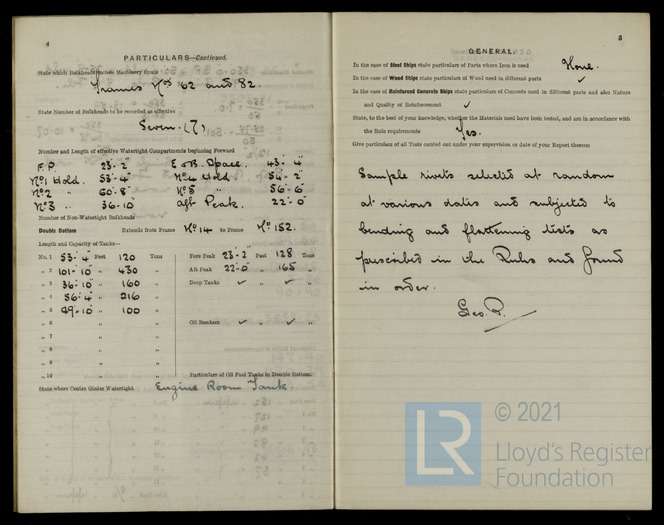 4
PARTICULARS—Continued.
State which Bulkheads enclose Machinery Space
Frames Nos 62 and 82.
State Number of Bulkheads to be recorded as effective
Seven (7)
Number and Length of effective Watertight Compartments beginning Forward
F.P. 23'-2" E & B. Space. 43'-4"
No 1 Hold. 53'-4" No 4 Hold 54'-2"
No 2 " 60'-8" No 5 " 56'-6"
No 3 " 36'-10" Aft Peak. 22'-0"
Number of Non-Watertight Bulkheads
Double Bottom Extends from Frame No 14 to Frame No 152.
Length and Capacity of Tanks—
No. 1 53'-4" Feet 120 Tons Fore Peak 23'-2" Feet 128 Tons
„ 2 101'-10" „ 430 „ Aft Peak 22'-0" „ 165 „
„ 3 36'-10" „ 160 „ Deep Tanks ✓ „ ✓ „
„ 4 56'-4" „ 216 „
„ 5 49'-10" „ 100 „ Oil Bunkers ✓ „ ✓ „
„ 6 „ „
„ 7 „ „
„ 8 „ „
„ 9 „ „
„ 10 „ „ Particulars of Oil Fuel Tanks in Double Bottom.
State where Centre Girder Watertight Engine Room Tank.
5
GENERAL.
In the case of Steel Ships state particulars of Parts where Iron is used None.
In the case of Wood Ships state particulars of Wood used in different parts ✓
In the case of Reinforced Concrete Ships state particulars of Concrete used in different parts and also Nature
and Quality of Reinforcement ✓
State, to the best of your knowledge, whether the Materials used have been tested, and are in accordance with
the Rule requirements Yes.
Give particulars of all Tests carried out under your supervision or date of your Report thereon
Sample rivets selected at random
at various dates and subjected to
bending and flattening tests as
prescribed in the Rules and found
in order.
Geo. R.
© 2021
LR Lloyd's Register
Foundation